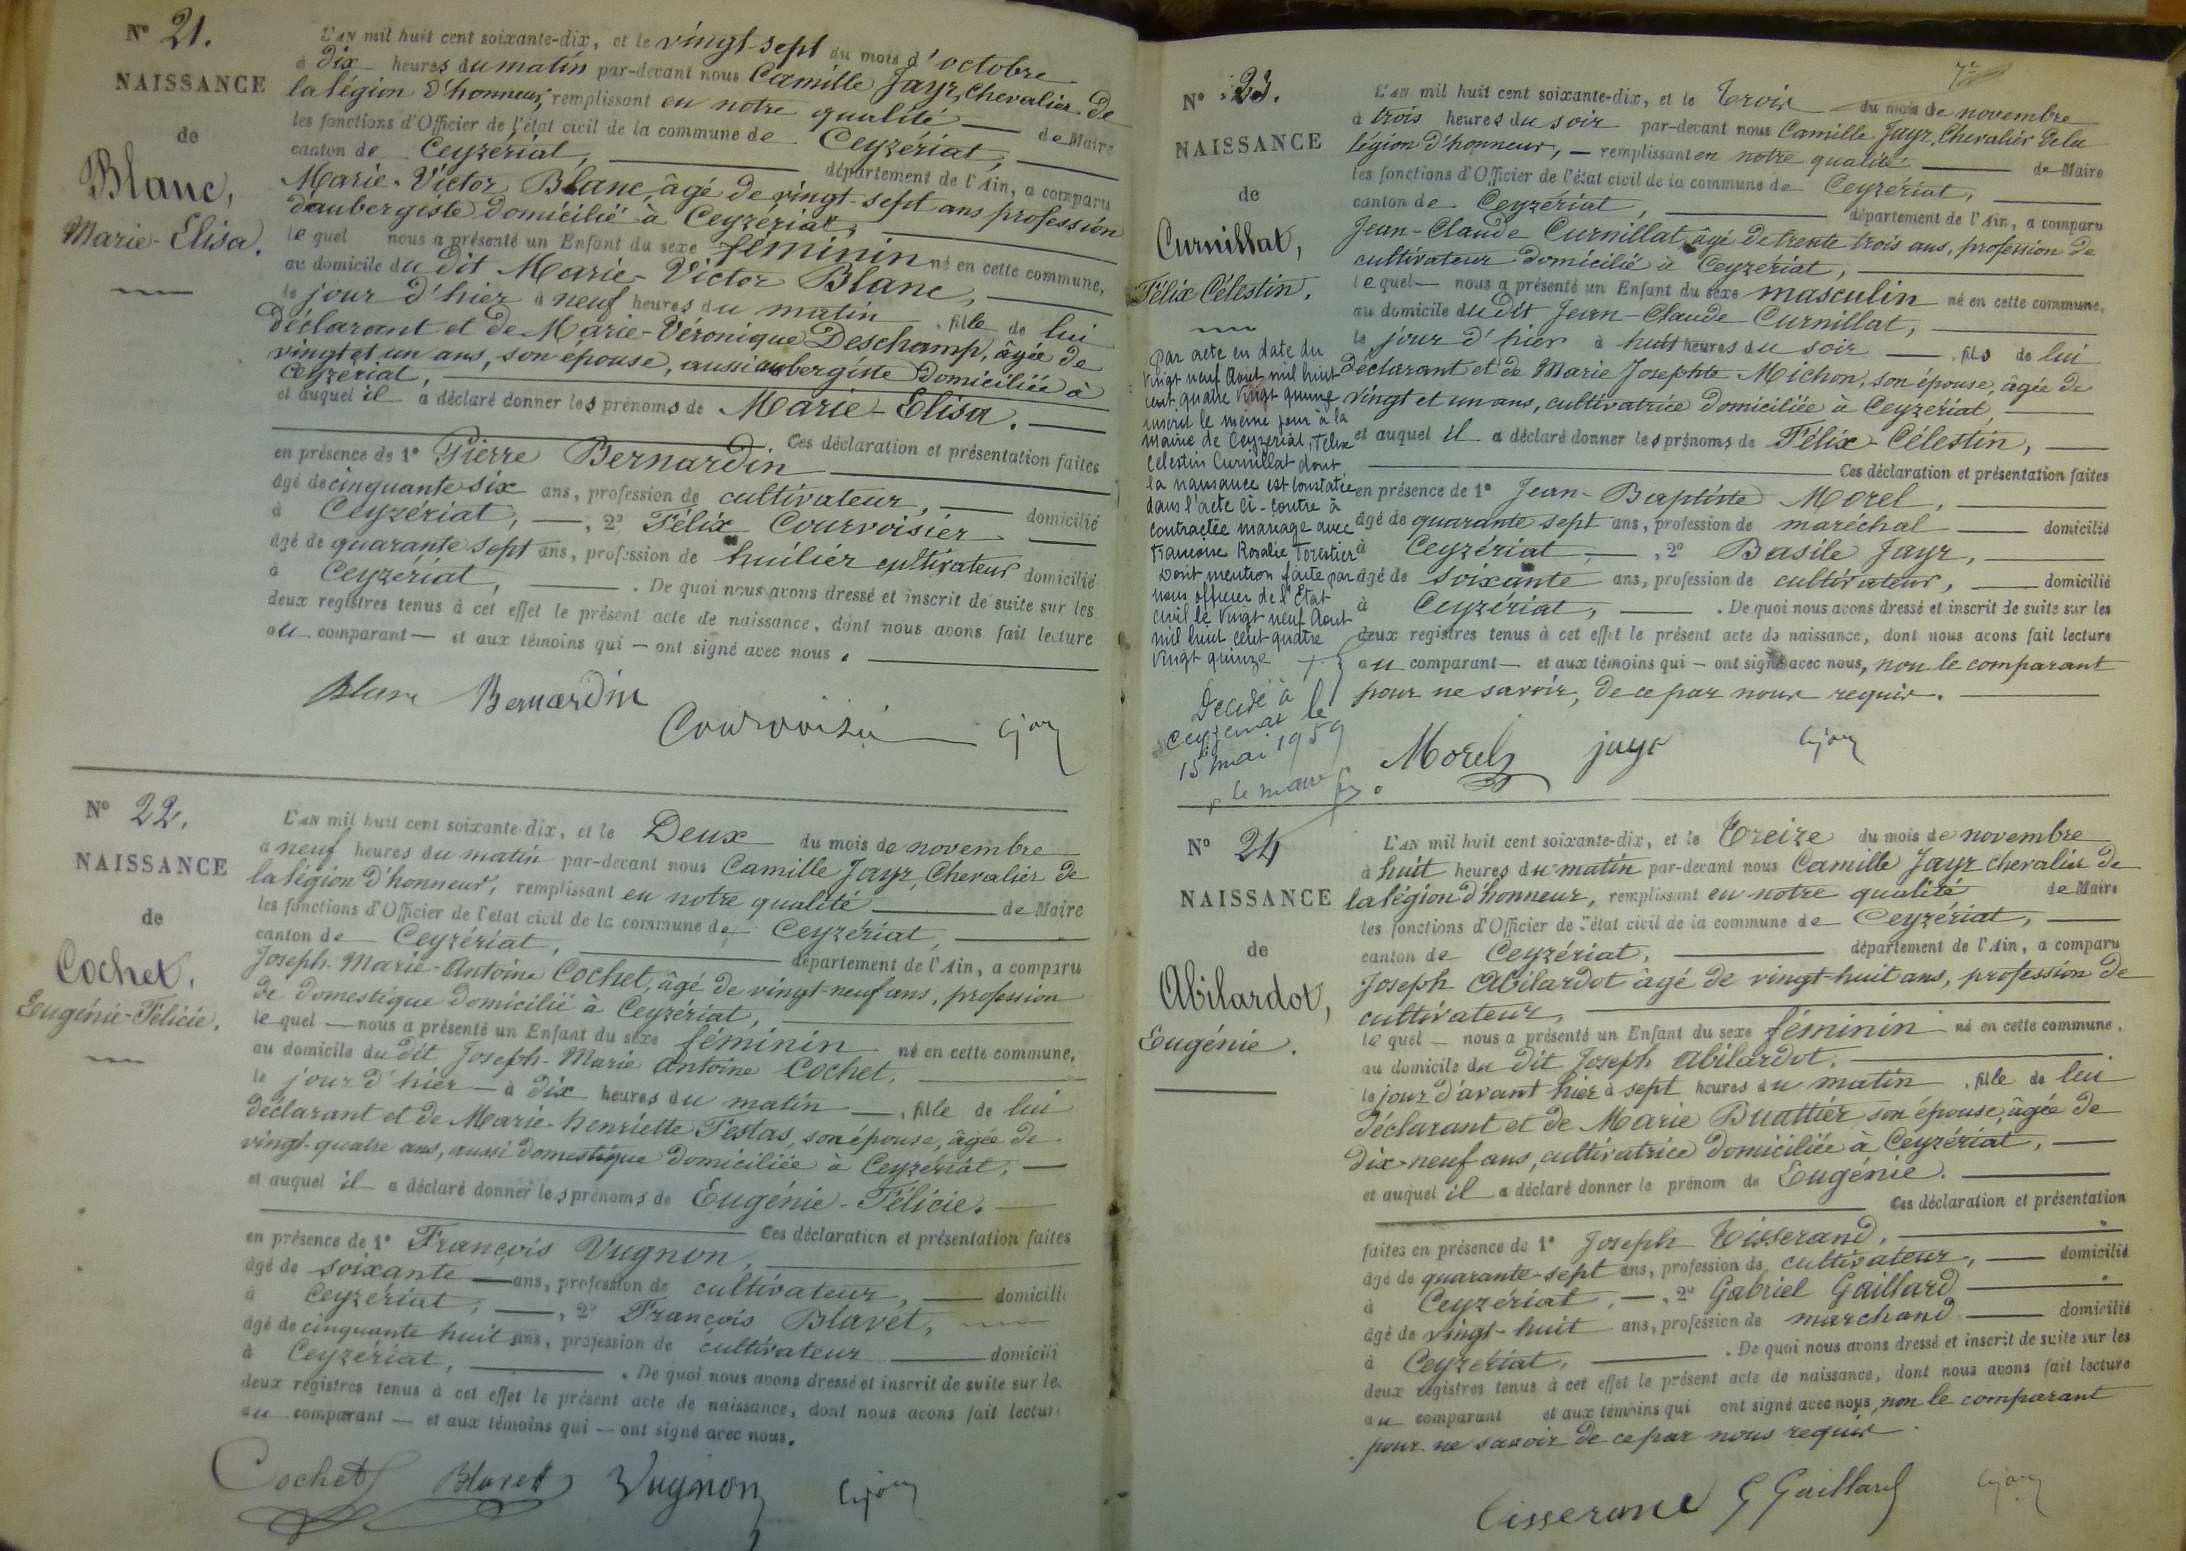 N° 21.
NAISSANCE
de
Blanc,
Marie-Elisa.
L'AN mil huit cent soixante-dix, et le vingt-sept du mois d'octobre
à dix heures du matin par-devant nous Camille Jayr, Chevalier de
la légion d'honneur, remplissant en notre qualité de Maire
les fonctions d'Officier de l'état civil de la commune de Ceyzériat,
canton de Ceyzériat, département de l'Ain, a comparu
Marie-Victor Blanc, âgé de vingt-sept ans profession
d'aubergiste domicilié à Ceyzériat,
lequel nous a présenté un Enfant du sexe féminin né en cette commune,
au domicile du dit Marie-Victor Blanc,
le jour d'hier à neuf heures du matin, fille de lui
déclarant et de Marie-Véronique Deschamp, âgée de
vingt et un ans, son épouse, aussi aubergiste domiciliée à
Ceyzériat,
et auquel il a déclaré donner les prénoms de Marie-Elisa.
Ces déclaration et présentation faites
en présence de 1° Pierre Bernardin
âgé de cinquante six ans, profession de cultivateur, domicilié
à Ceyzériat, 2° Félix Courvoisier
âgé de quarante sept ans, profession de huilier cultivateur domicilié
à Ceyzériat, . De quoi nous avons dressé et inscrit de suite sur les
deux registres tenus à cet effet le présent acte de naissance, dont nous avons fait lecture
au comparant — et aux témoins qui — ont signé avec nous.
Blanc Bernardin
Courvoisier CJayr
N° 22.
NAISSANCE
de
Cochet,
Eugénie-Félicie.
L'AN mil huit cent soixante-dix, et le Deux du mois de novembre
à neuf heures du matin par-devant nous Camille Jayr, Chevalier de
la légion d'honneur, remplissant en notre qualité de Maire
les fonctions d'Officier de l'état civil de la commune de Ceyzériat,
canton de Ceyzériat, département de l'Ain, a comparu
Joseph-Marie-Antoine Cochet, âgé de vingt-neuf ans, profession
de domestique domicilié à Ceyzériat,
lequel — nous a présenté un Enfant du sexe féminin né en cette commune,
au domicile du dit Joseph-Marie Antoine Cochet,
le jour d'hier — à dix heures du matin — , fille de lui
déclarant et de Marie-henriette Testas, son épouse, âgée de
vingt-quatre ans, aussi domestique domiciliée à Ceyzériat, —
et auquel il a déclaré donner les prénoms de Eugénie-Félicie.
Ces déclaration et présentation faites
en présence de 1° François Vugnon,
âgé de soixante — ans, profession de cultivateur, domicilié
à Ceyzériat, — , 2° François Blavet,
âgé de cinquante huit ans, profession de cultivateur domicili
à Ceyzériat, . De quoi nous avons dressé et inscrit de suite sur les
deux registres tenus à cet effet le présent acte de naissance, dont nous avons fait lecture
au comparant — et aux témoins qui — ont signé avec nous.
Cochet Blavet Vugnon CJayr
7e
N° 23.
NAISSANCE
de
Curnillat,
Félix Célestin.
par acte en date du
vingt neuf Aout mil huit
cent quatre vingt quinze
inscrit le même jour à la
mairie de Ceyzeriat, Félix
Celestin Curnillat dont
la naissance est constatée
dans l'acte ci-contre à
contractée mariage avec
Francoise Rosalie Forestier
Dont mention faite par
nous officier de l'Etat
civil le Vingt neuf Aout
mil huit cent quatre
vingt quinze
Décédé à
Ceyzeriat le
15 mai 1959
le maire
L'AN mil huit cent soixante-dix, et le Trois du mois de novembre
à trois heures du soir par-devant nous Camille Jayr, Chevalier de la
légion d'honneur, — remplissant en notre qualité de Maire
les fonctions d'Officier de l'état civil de la commune de Ceyzériat,
canton de Ceyzériat, département de l'Ain, a comparu
Jean-Claude Curnillat, âgé de trente trois ans, profession de
cultivateur domicilié à Ceyzériat,
lequel — nous a présenté un Enfant du sexe masculin né en cette commune,
au domicile du dit Jean-Claude Curnillat,
le jour d'hier à huit heures du soir — , fils de lui
déclarant et de Marie Josephte Michon, son épouse, âgée de
vingt et un ans, cultivatrice domiciliée à Ceyzériat,
et auquel il a déclaré donner les prénoms de Félix-Célestin,
Ces déclaration et présentation faites
en présence de 1° Jean-Baptiste Morel,
âgé de quarante sept ans, profession de maréchal domicilié
à Ceyzériat, — , 2° Basile Jayr,
âgé de soixante ans, profession de cultivateur, domicilié
à Ceyzériat, . De quoi nous avons dressé et inscrit de suite sur les
deux registres tenus à cet effet le présent acte de naissance, dont nous avons fait lecture
au comparant — et aux témoins qui — ont signé avec nous, non le comparant
pour ne savoir, de ce par nous requis.
Morel jayr CJayr
N° 24
NAISSANCE
de
Abilardot,
Eugénie.
L'AN mil huit cent soixante-dix, et le Treize du mois de novembre
à huit heures du matin par-devant nous Camille Jayr chevalier de
la légion d'honneur, remplissant en notre qualité de Maire
les fonctions d'Officier de l'état civil de la commune de Ceyzériat,
canton de Ceyzériat, département de l'Ain, a comparu
Joseph Abilardot âgé de vingt-huit ans, profession de
cultivateur,
lequel — nous a présenté un Enfant du sexe féminin né en cette commune,
au domicile du dit Joseph Abilardot,
le jour d'avant hier à sept heures du matin , fille de lui
déclarant et de Marie Buattier son épouse, âgée de
dix-neuf ans, cultivatrice domiciliée à Ceyzériat,
et auquel il a déclaré donner le prénom de Eugénie.
Ces déclaration et présentation
faites en présence de 1° Joseph Tisserand,
âgé de quarante-sept ans, profession de cultivateur, domicilié
à Ceyzériat, — , 2° Gabriel Gaillard
âgé de vingt-huit ans, profession de marchand domicilié
à Ceyzériat, . De quoi nous avons dressé et inscrit de suite sur les
deux registres tenus à cet effet le présent acte de naissance, dont nous avons fait lecture
au comparant et aux témoins qui ont signé avec nous, non le comparant
pour ne savoir de ce par nous requis
Tisserand G Gaillard CJayr